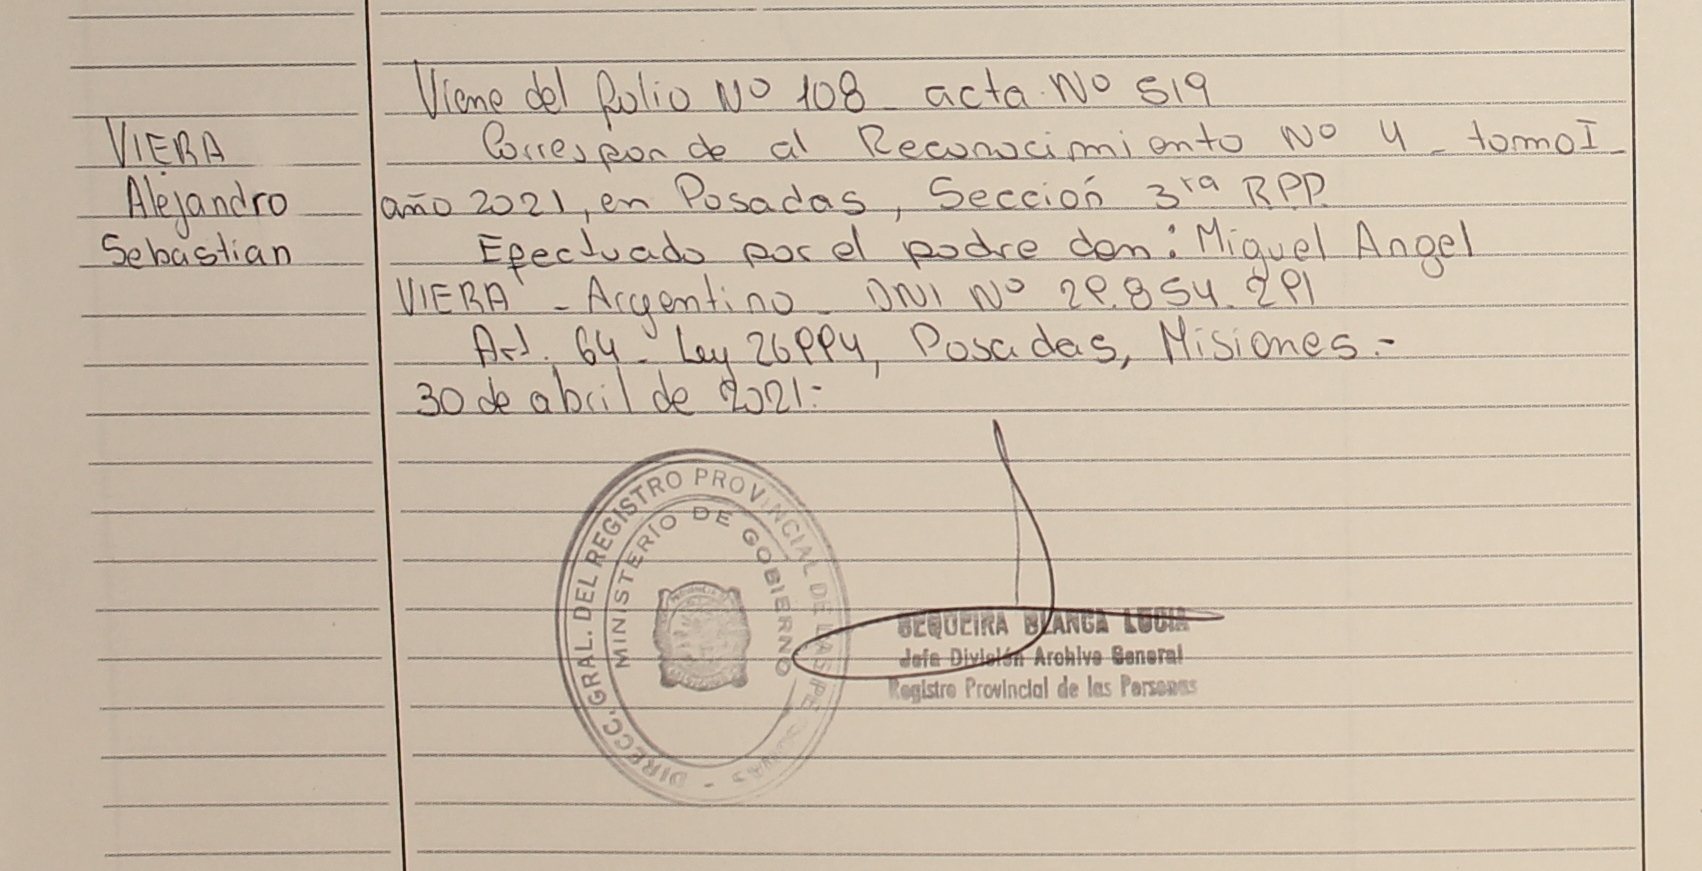 Viene del folio Nº 108 acta Nº 519
VIERA
Alejandro
Sebastian
Corresponde al Reconocimiento Nº 4 - tomo I
año 2021, en Posadas, Sección 3ra RPP.
Efectuado por el padre don: Miguel Angel
VIERA - Argentino - DNI Nº 29.854.291
Art. 64 - Ley 26994, Posadas, Misiones.-
30 de abril de 2021.-
DIRECC. GRAL. DEL REGISTRO PROVINCIAL DE LAS PERSONAS -
MINISTERIO DE GOBIERNO
SEQUEIRA BLANCA LUCIA
Jefa División Archivo General
Registro Provincial de las Personas